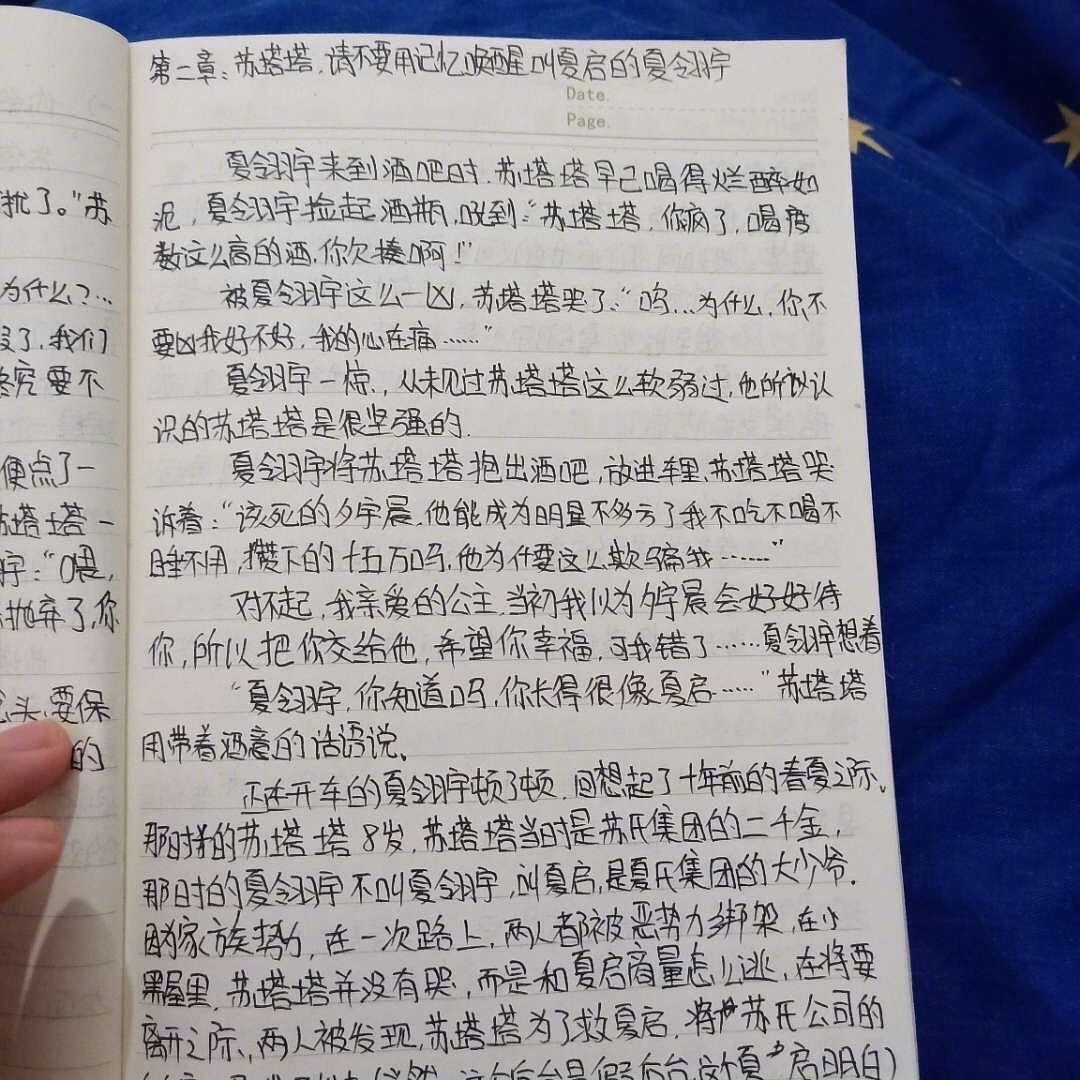 第二章:苏塔塔,请不要用记忆唤醒叫夏启的夏翎羽宇
Date.
Page.
夏翎羽宇来到酒吧时,苏塔塔早已喝得烂醉如
泥,夏翎羽宇捡起酒瓶,说到:“苏塔塔,你病了,喝度
数这么高的酒,你欠揍啊!”
被夏翎羽宇这么一凶,苏塔塔哭了:“呜...为什么,你不
要凶我好不好,我的心在痛……”
夏翎羽宇一惊,从未见过苏塔塔这么软弱过,他所以认
识的苏塔塔是很坚强的.
夏翎羽宇将苏塔塔抱出酒吧,放进车里,苏塔塔哭
诉着:“该死的夕宇晨,他能成为明星不多亏了我不吃不喝不
睡不用,攒下的十五万吗,他为什要这么欺骗我……”
对不起,我亲爱的公主,当初我以为夕宇晨会好好待
你,所以把你交给他,希望你幸福,可我错了……夏翎羽宇想着
“夏翎羽宇,你知道吗,你长得很像夏启……”苏塔塔
用带着酒意的话语说。
正在开车的夏翎羽宇顿了顿,回想起了十年前的春夏之际。
那时的苏塔塔8岁,苏塔塔当时是苏氏集团的二千金,
那时的夏翎羽宇不叫夏翎羽宇,叫夏启,是夏氏集团的大少爷.
因为家族势力,在一次路上,两人都被恶势力绑架,在小
黑屋里,苏塔塔并没有哭,而是和夏启商量怎么逃,在将要
离开之际,两人被发现,苏塔塔为了救夏启,将苏氏公司的
扰了。”苏
为什么?...
没了,我们
终究要不
便点了一
苏塔塔一
宇:“喂,
抛弃了,你
头,要保
的